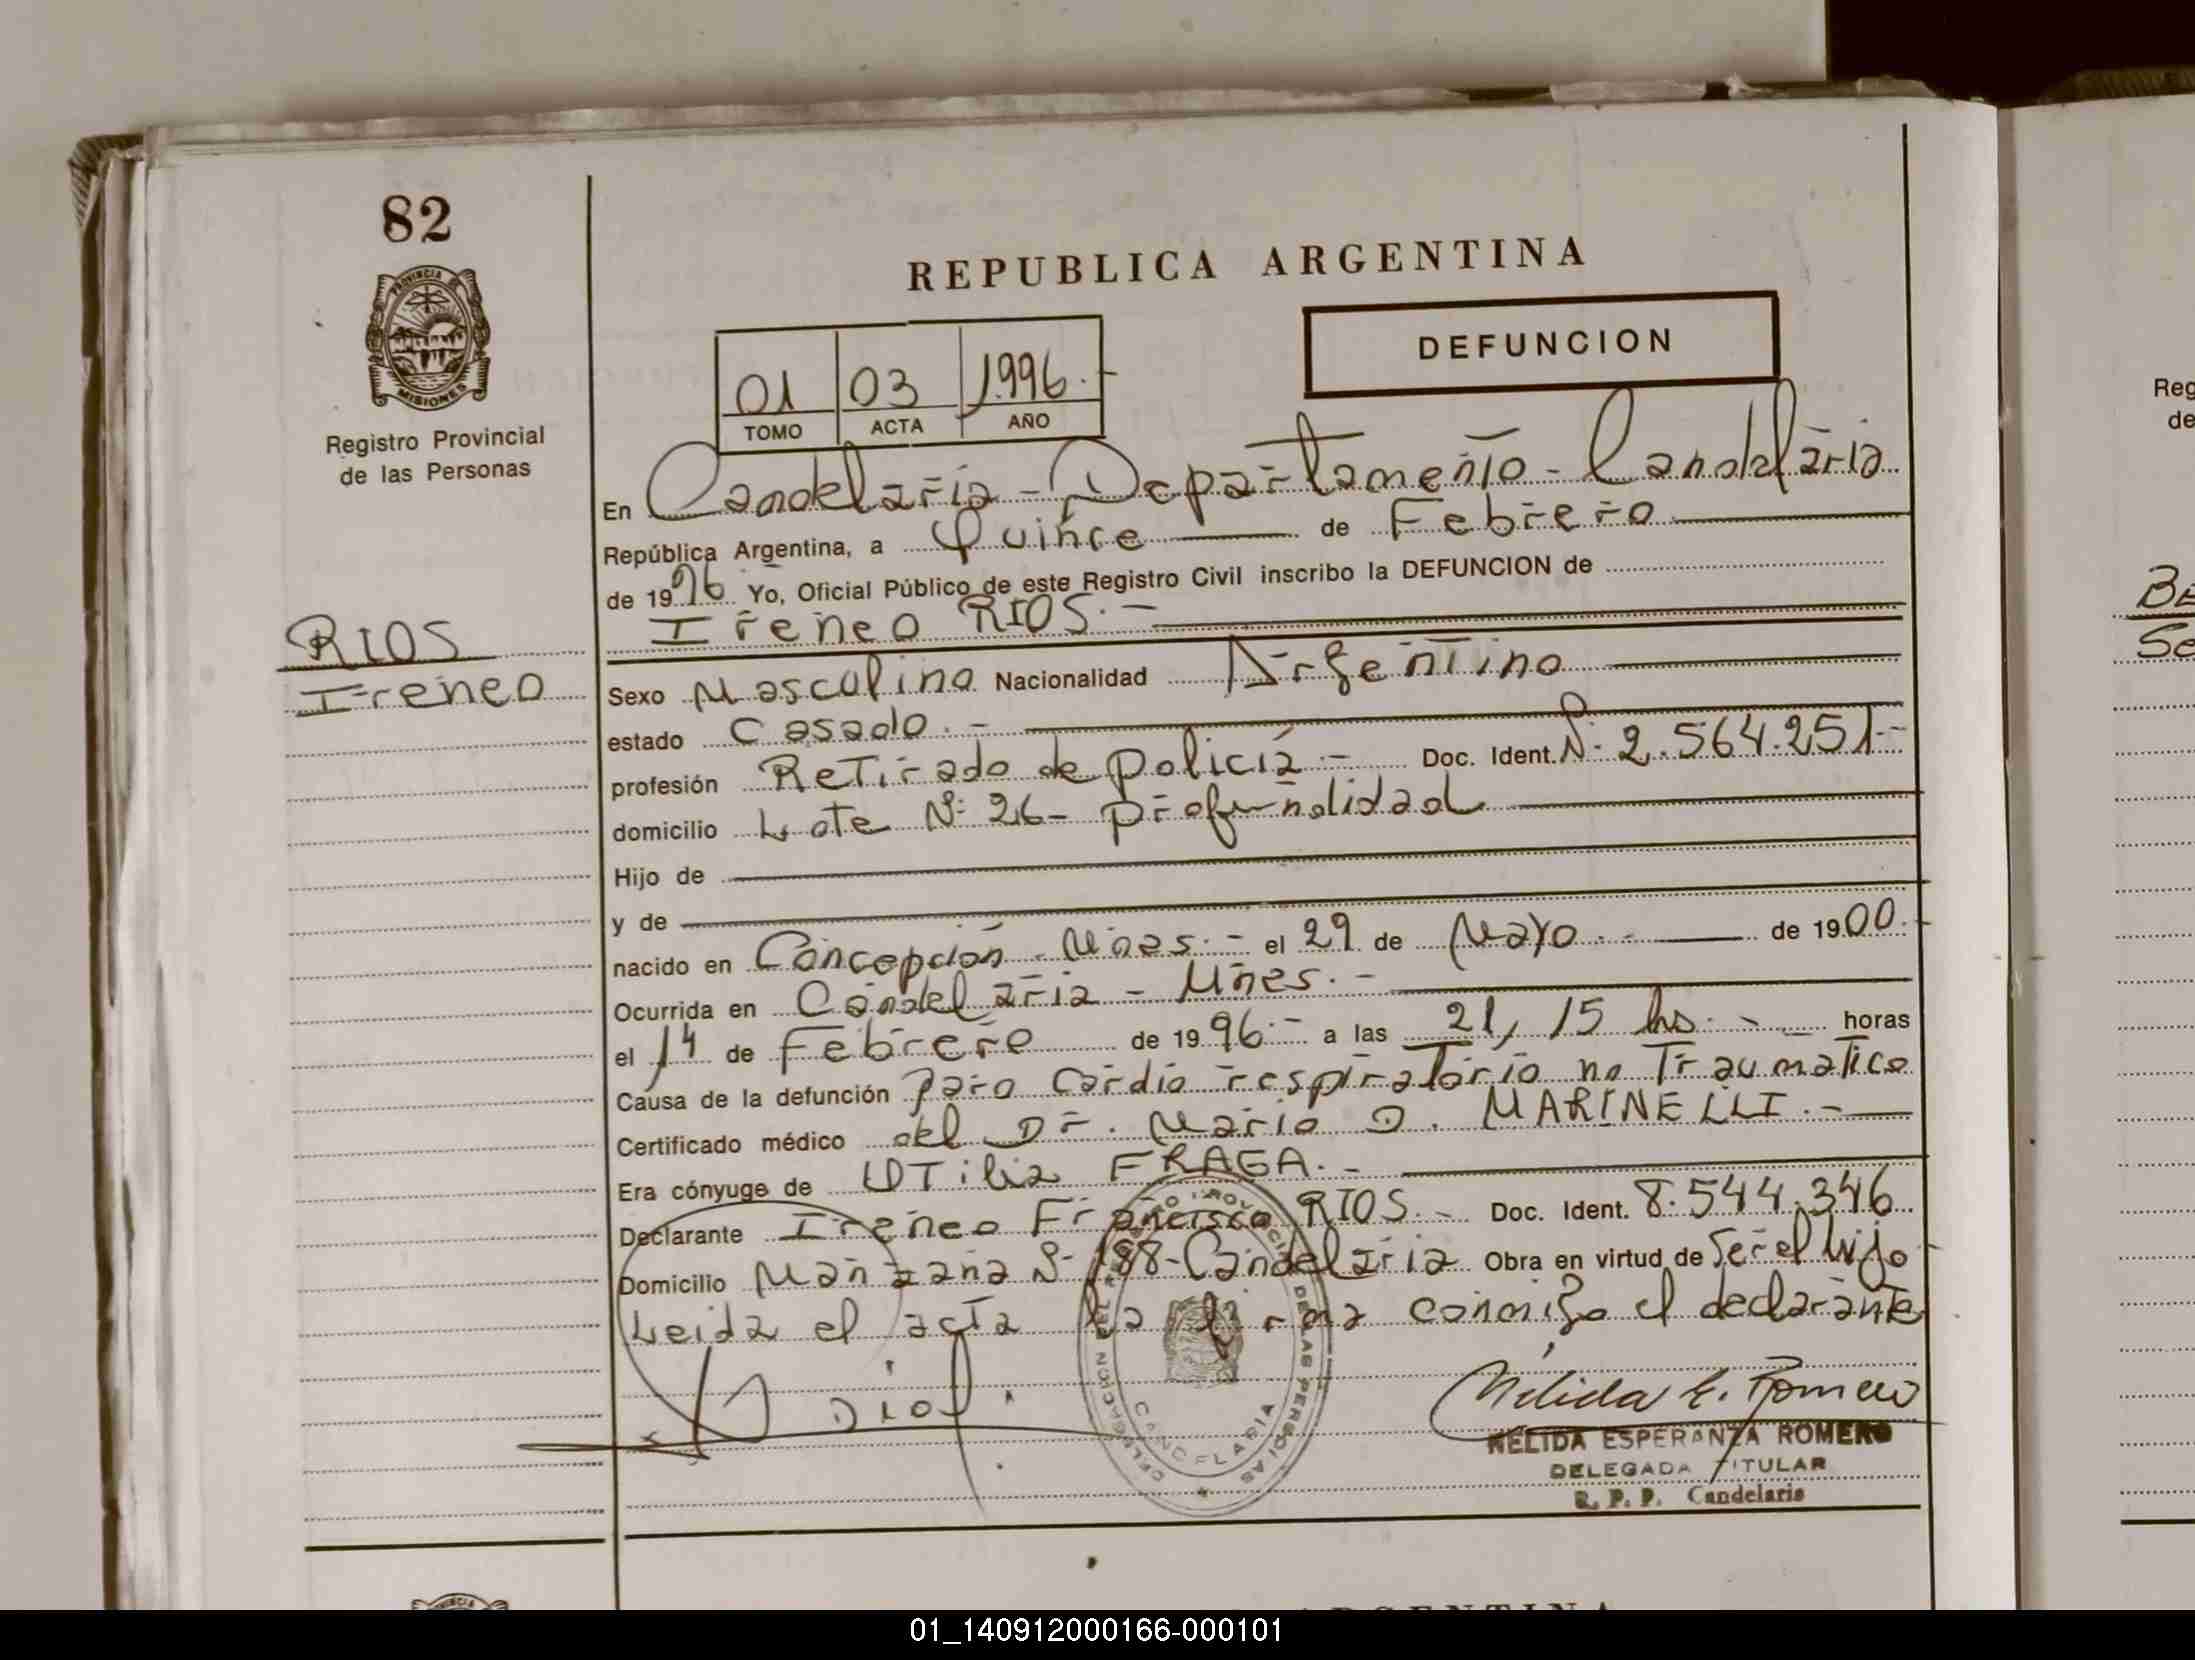 82
PROVINCIA
MISIONES
Registro Provincial
de las Personas
RIOS
Ireneo
REPUBLICA ARGENTINA
DEFUNCION
01 03 1.996.-
TOMO ACTA AÑO
En Candelaria - Departamento - Candelaria
República Argentina, a Quince de Febrero
de 1996 Yo, Oficial Público de este Registro Civil inscribo la DEFUNCION de
Ireneo RIOS.-
Sexo Masculino Nacionalidad Argentino
estado Casado.-
profesión Retirado de policía - Doc. Ident. N° 2.564.251.-
domicilio Lote N° 26 - profundidad
Hijo de
y de
nacido en Concepción - Mnes.- el 29 de Mayo.- de 1900.-
Ocurrida en Candelaria - Mnes.-
el 14 de Febrero de 1996.- a las 21,15 hs.- horas
Causa de la defunción paro cardio respiratorio no Traumatico
Certificado médico del Dr. Mario D. MARINELLI.-
Era cónyuge de UTilia FRAGA.-
Declarante Ireneo Francisco RIOS.- Doc. Ident. 8.544.346
Domicilio Manzana N° 188 - Candelaria Obra en virtud de Ser el hijo
Leida el acta la firma conmigo el declarante
DELEGACION DEL REGISTRO PROVINCIAL DE LAS PERSONAS
CANDELARIA
Nélida E. Romero
NELIDA ESPERANZA ROMERO
DELEGADA TITULAR
R. P. P. Candelaria
ARGENTINA
Reg
de
BE
Se
01_140912000166-000101